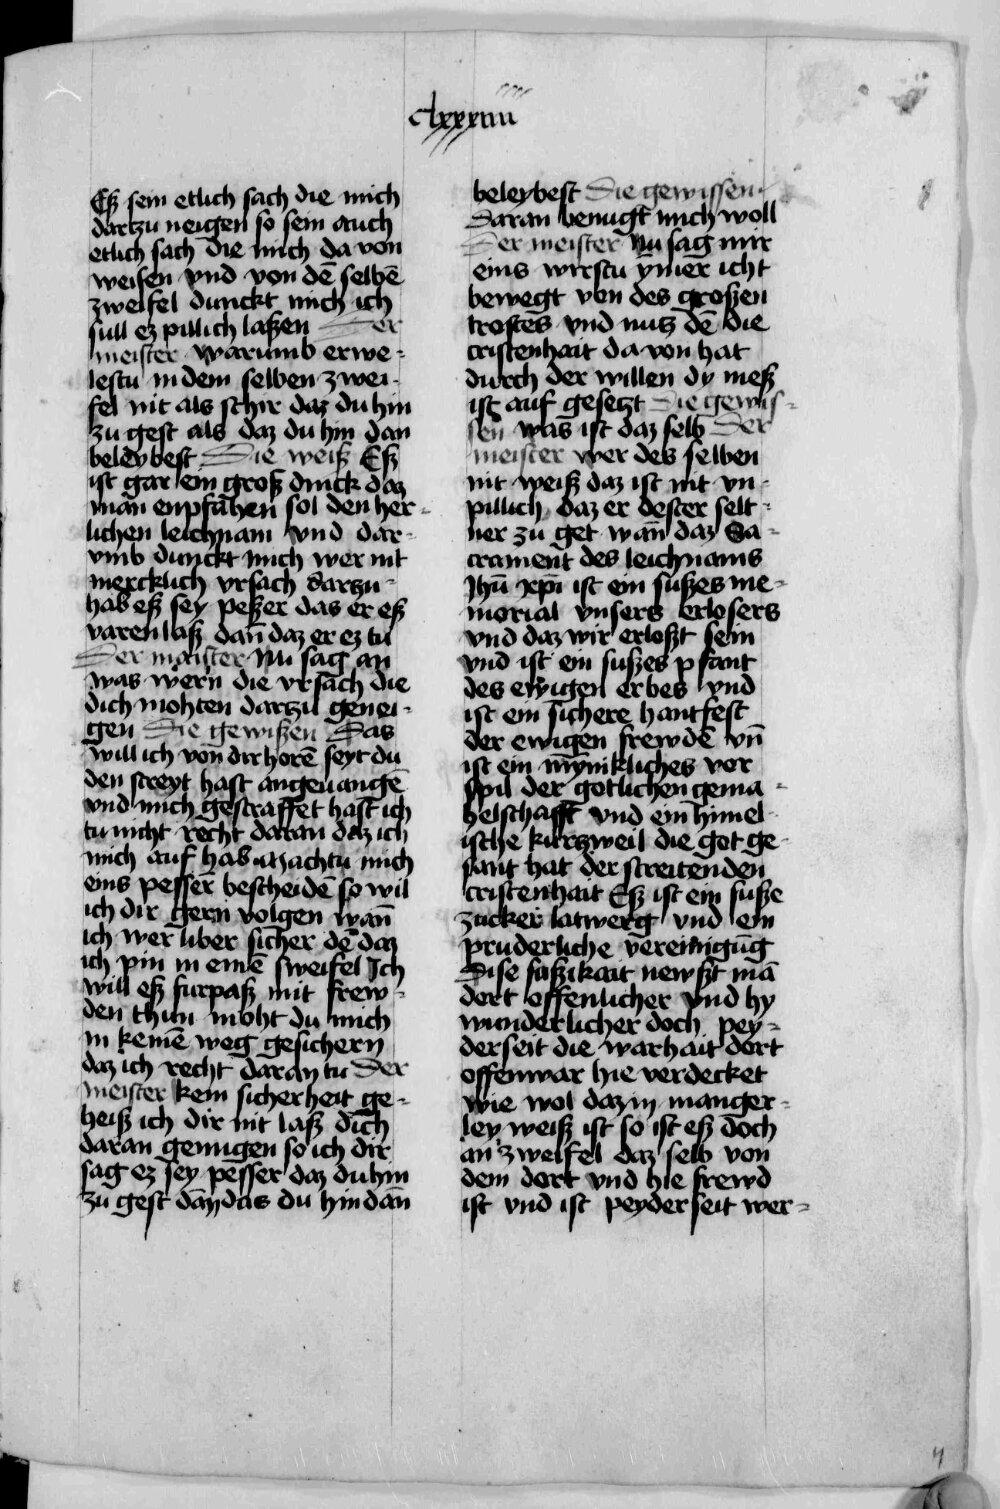 clxxxiiii
Eß sein etlich sach die mich
dartzu neigen so sein auch
etlich sach die mich da von
weisen vnd von dē selbē
zweifel dunckt mich ich
sull ez pillich laßen Der
meister warumb erwe-
lestu in dem selben zwei-
fel nit als schir daz du hin
zu gest als daz du hin dan
beleybest Die weiß Eß
ist gar ein groß dinck daz
man enpfahen sol den her-
lichen leichnam vnd dar-
vmb dunckt mich wer nit
mercklich vrsach dartzu-
hab eß sey peßer das er eß
varen laß dan̄ daz er ez tu
Der maister Nu sag an
was wern die vrsach die
dich mohten dartzu genei-
gen Die gewißen Das
will ich von dir horē seyt du
den streyt hast angeuangē
vnd mich gestraffet hast ich
tu nicht recht daran daz ich
mich auf hab Machtu mich
eins pesser bescheidē so wil
ich dir gern volgen wan̄
ich wer liber sicher dē daz
ich pin in einē sweifel Ich
will eß furpaß mit frew-
den thun moht du mich
in keinē weg gesichern
daz ich recht daran tu Der
meister kein sicherheit ge-
heiß ich dir nit laß dich
daran genugen so ich dir
sag ez sey pesser daz du hin
zu gest dan das du hin dan
beleybest Die gewissen
Daran benugt mich woll
Der meister Nu sag mir
eins wirstu ymer icht
bewegt von des großen
trostes vnd nutz dē die
cristenhait da von hat
durch der willen dy meß
ist auf gesetzt Die gewis-
sen was ist daz selb Der
meister wer des selben
nit weiß daz ist nit vn-
pillich daz er dester selt-
ner zu get wan̄ daz Sa-
crament des leichnams
Jhū xp̄i ist ein sußes me-
morial vnsers erlosers
vnd daz wir erloßt sein
vnd ist ein sußes pfant
des ewigen erbes vnd
ist ein sichere hantfest
der ewigen frewdē vn̄
ist ein mynikliches vor
spil der gotlichen gema-
helschafft vnd ein himel-
ische kurtzweil die got ge-
sant hat der streitenden
cristenhait Eß ist ein suße
zucker latwerg vnd ein
pruderliche vereinigūg
Dise saßikait newßt mā
dort offenlicher vnd hy
wunderlicher doch pey-
derseit die warhait dort
offenwar hie verdecket
wie wol daz in manger-
ley weiß ist so ist eß doch
an zweifel daz selb von
dem dort vnd hie frewd
ist vnd ist peyder seit wer-